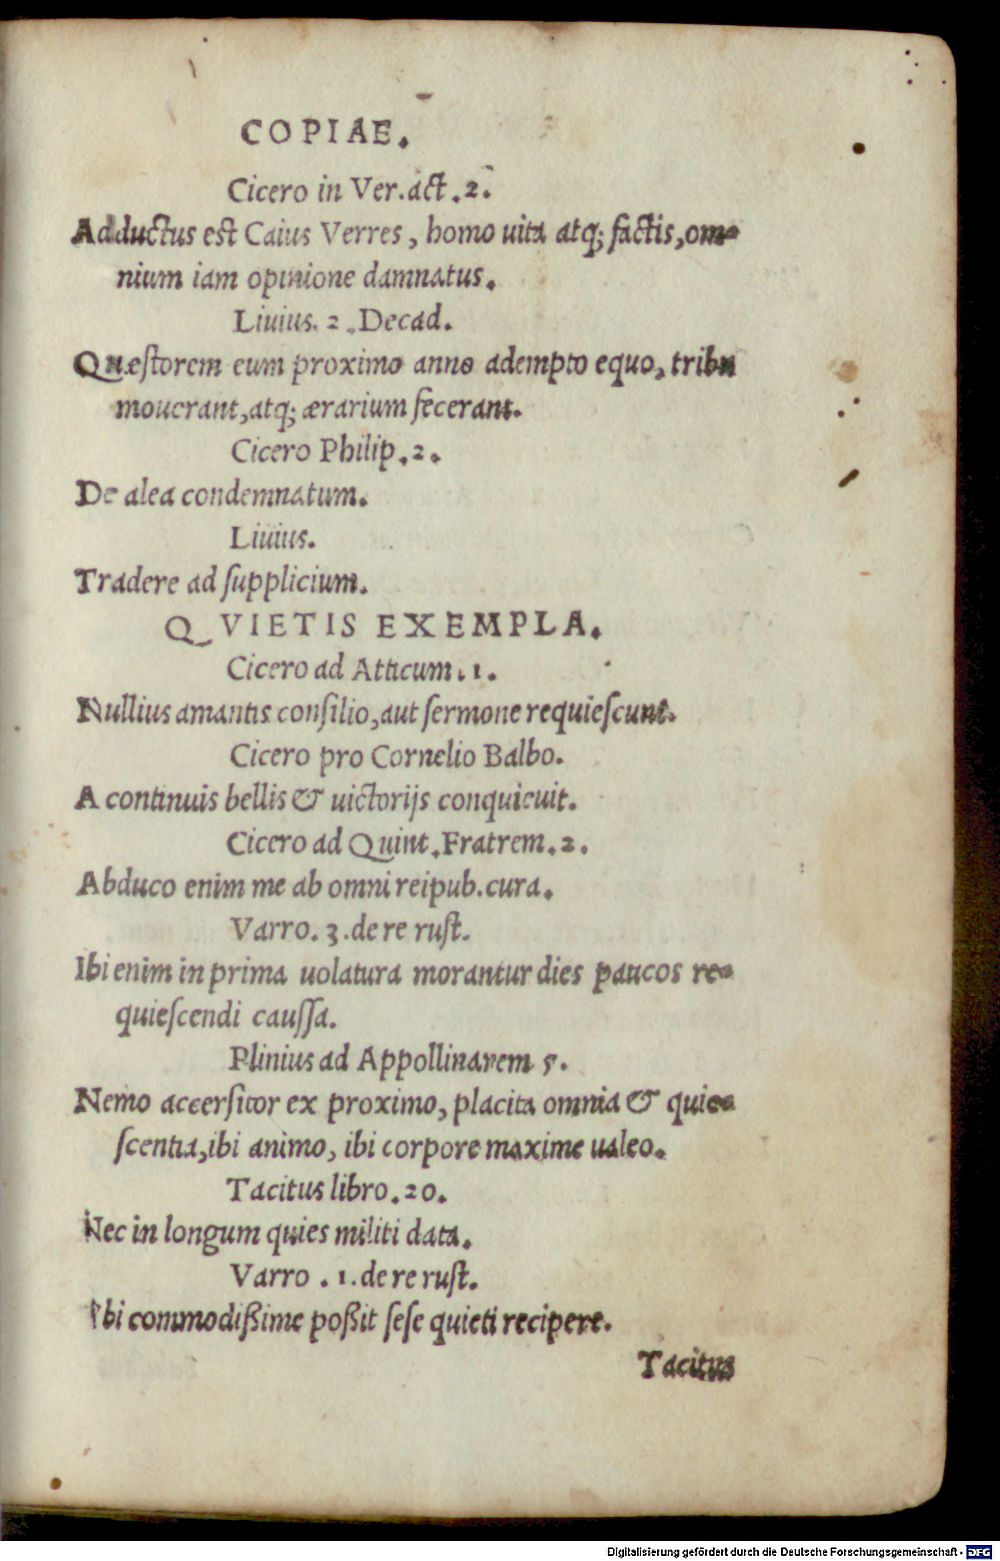 COPIAE.
Cicero in Ver.act.2.
Adductus est Caius Verres, homo uita atq; factis, om-
nium iam opinione damnatus.
Liuius. 2. Decad.
Quæstorem eum proximo anno adempto equo, tribu
mouerant, atq; ærarium fecerant.
Cicero Philip.2.
De alea condemnatum.
Liuius.
Tradere ad supplicium.
QVIETIS EXEMPLA.
Cicero ad Atticum.1.
Nullius amantis consilio, aut sermone requiescunt.
Cicero pro Cornelio Balbo.
A continuis bellis & uictorijs conquieuit.
Cicero ad Quint. Fratrem.2.
Abduco enim me ab omni reipub.cura.
Varro.3.de re rust.
Ibi enim in prima uolatura morantur dies paucos re-
quiescendi caussa.
Plinius ad Appollinarem 5.
Nemo accersitor ex proximo, placita omnia & quie-
scentia, ibi animo, ibi corpore maxime ualeo.
Tacitus libro.20.
Nec in longum quies militi data.
Varro.1.de re rust.
Ibi commodißime poßit sese quieti recipere.
Tacitus
Digitalisierung gefördert durch die Deutsche Forschungsgemeinschaft - DFG